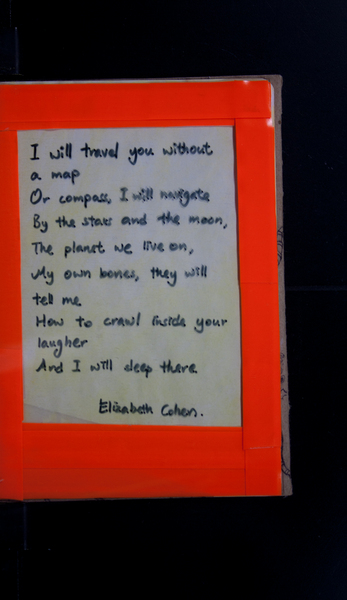 I will travel you without
a map
Or compass, I will navigate
By the stars and the moon,
The planet we live on,
My own bones, they will
tell me
How to crawl inside your
laugher
And I will sleep there
Elizabeth Cohen.